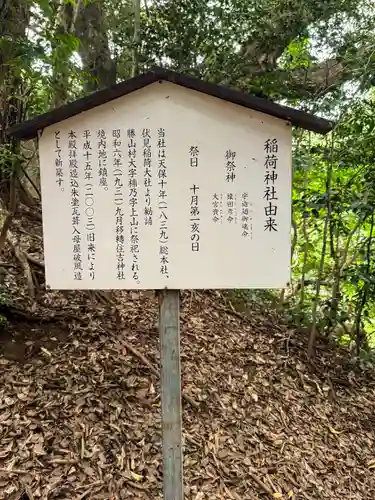 稲荷神社由来
御祭神　宇迦御魂命
猿田彦命
大宮貴命
祭日　十月第一亥の日
当社は天保十年(一八三九)総本社、
伏見稲荷大社より勧請
勝山村大字楠乃字上山に祭祀される。
昭和六年(一九三一)九月移轉住吉神社
境内地に鎮座。
平成十五年(二〇〇三)旧来により
本殿拝殿造込朱塗瓦葺入母屋破風
として新築す。